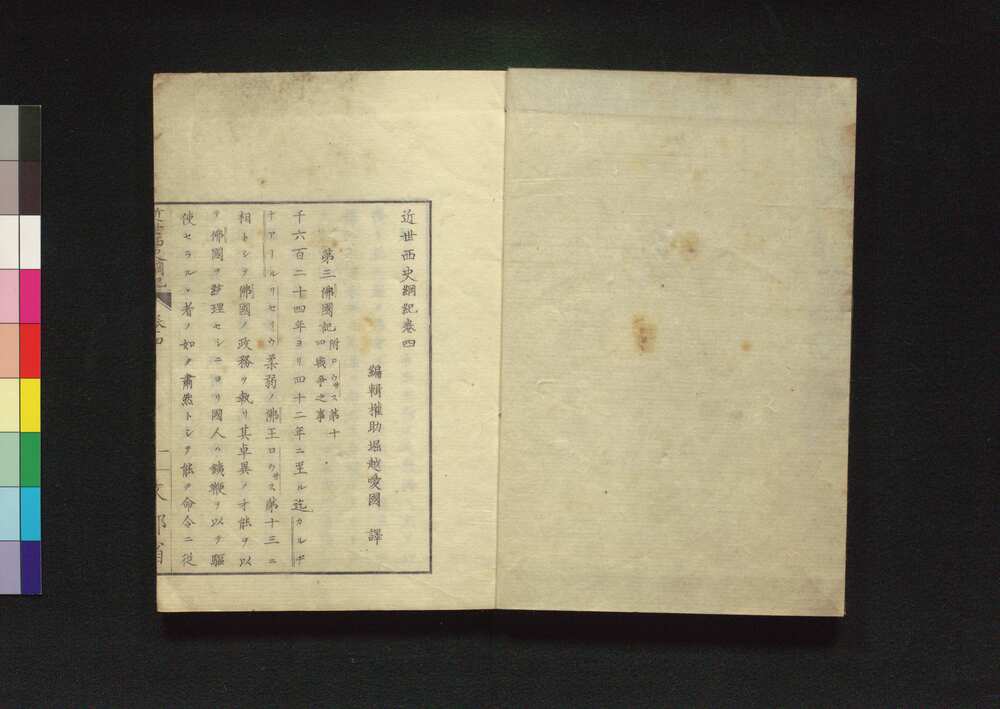 近世西史綱紀卷四
編輯權助堀越愛國 譯
第三佛國記附ロウサス第十
四戰爭之事
千六百二十四年ヨリ四十二年ニ至ル迄カルヂ
ナアールリセリウ柔弱ノ佛王ロウサス第十三ニ
相トシテ佛國ノ政務ヲ執リ其卓異ノ才能ヲ以
テ佛國ヲ整理セシニヨリ國人ハ鐵鞭ヲ以テ驅
使セラルヽ者ノ如ク肅然トシテ能ク命令ニ從
近世西史綱紀 卷四 一 文部省